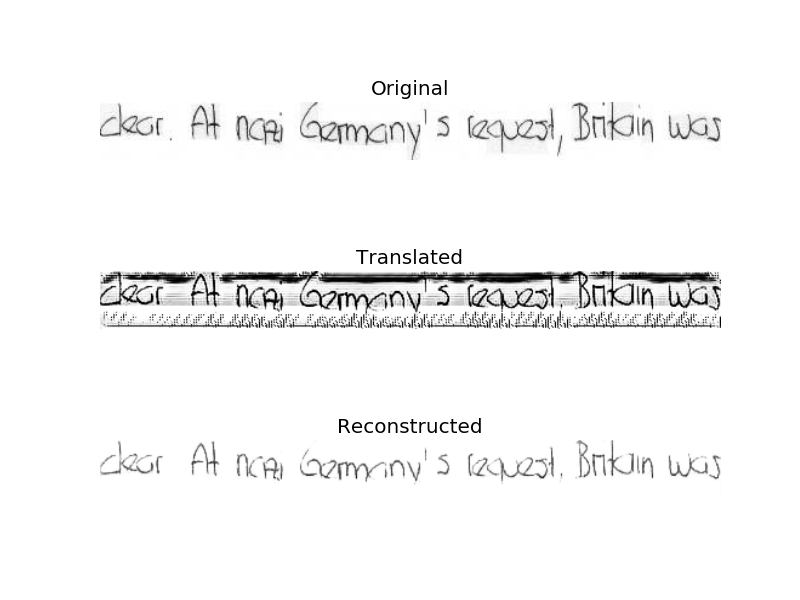 Original
clear. At nazi Germany's request, Britain was
Translated
clear At nazi Germany's request. Britain was
Reconstructed
clear At nazi Germany's request. Britain was